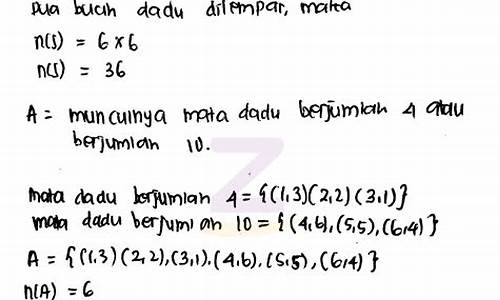 Dua buah dadu dilempar, maka
n(s) = 6 x 6
n(s) = 36
A = munculnya mata dadu berjumlah 4 atau
berjumlah 10.
mata dadu berjumlah 4 = {(1,3)(2,2)(3,1)}
mata dadu berjumlah 10 = {(4,6),(5,5),(6,4)}
A = {(1,3)(2,2),(3,1).(4,6),(5,5),(6,4)}
n(A) = 6